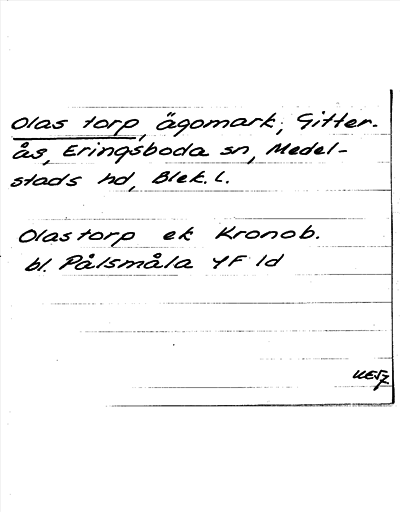 Olas torp, ägomark, Gitter-
ås, Eringsboda sn, Medel-
stads hd, Blek. l.
Olastorp ek Kronob.
bl. Pålsmåla YF 1d